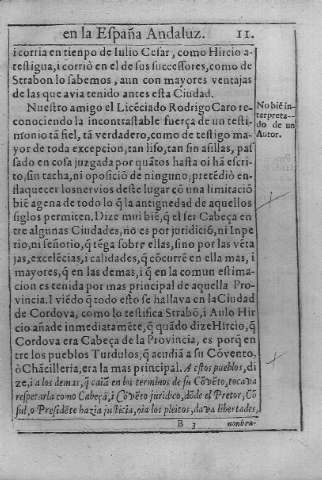 en la España Andaluz. 11.
i corria en tienpo de Iulio Cesar, como Hircio a-
testigua, i corriò en el de sus successores, como de
Strabon lo sabemos, aun con mayores ventajas
de las que avia tenido antes esta Ciudad.
Nuestro amigo el Licēciado Rodrigo Caro re-
conociendo la incontrastable fuerça de un testi-
monio tā fiel, tā verdadero, como de testigo ma-
yor de toda excepcion, tan liso, tan sin asillas, pas
sado en cosa juzgada por quātos hasta oi hā escri-
to, sin tacha, ni oposiciō de ninguno; pretēdiò en-
flaquecer los nervios deste lugar cō una limitaciō
biē agena de todo lo q̄ la antiguedad de aquellos
siglos permiten. Dize mui biē, q̄ el ser Cabeça en
tre algunas Ciudades, no es por juridiciō, ni Inpe
rio, ni señorio, q̄ tēga sobre ellas, sino por las vēta
jas, excelēcias, i calidades, q̄ cōcurrē en ella mas, i
mayores, q̄ en las demas, i q̄ en la comun estima-
cion es tenida por mas principal de aquella Pro-
vincia. I viēdo q̄ todo esto se hallava en la Ciudad
de Cordova, como lo testifica Strabō, i Aulo Hir
cio añade inmediatamēte, q̄ quādo dize Hircio, q̄
Cordova era Cabeça de la Provincia, es porq̄ en
tre los pueblos Turdulos, q̄ acudiā a su Cōvento,
ò Chācilleria, era la mas principal. A estos pueblos, di
ze, i a los demas, q̄ caiā en los terminos de su Cōvēto, tocava
respetarla como Cabeçā, i Cōvēto juridico, dōde el Pretor, Cō
sul, o Presidēte hazia justicia, oia los pleitos, dava libertades,
B 3 nonbra-
No biē in-
terpreta--
do de un
Autor.